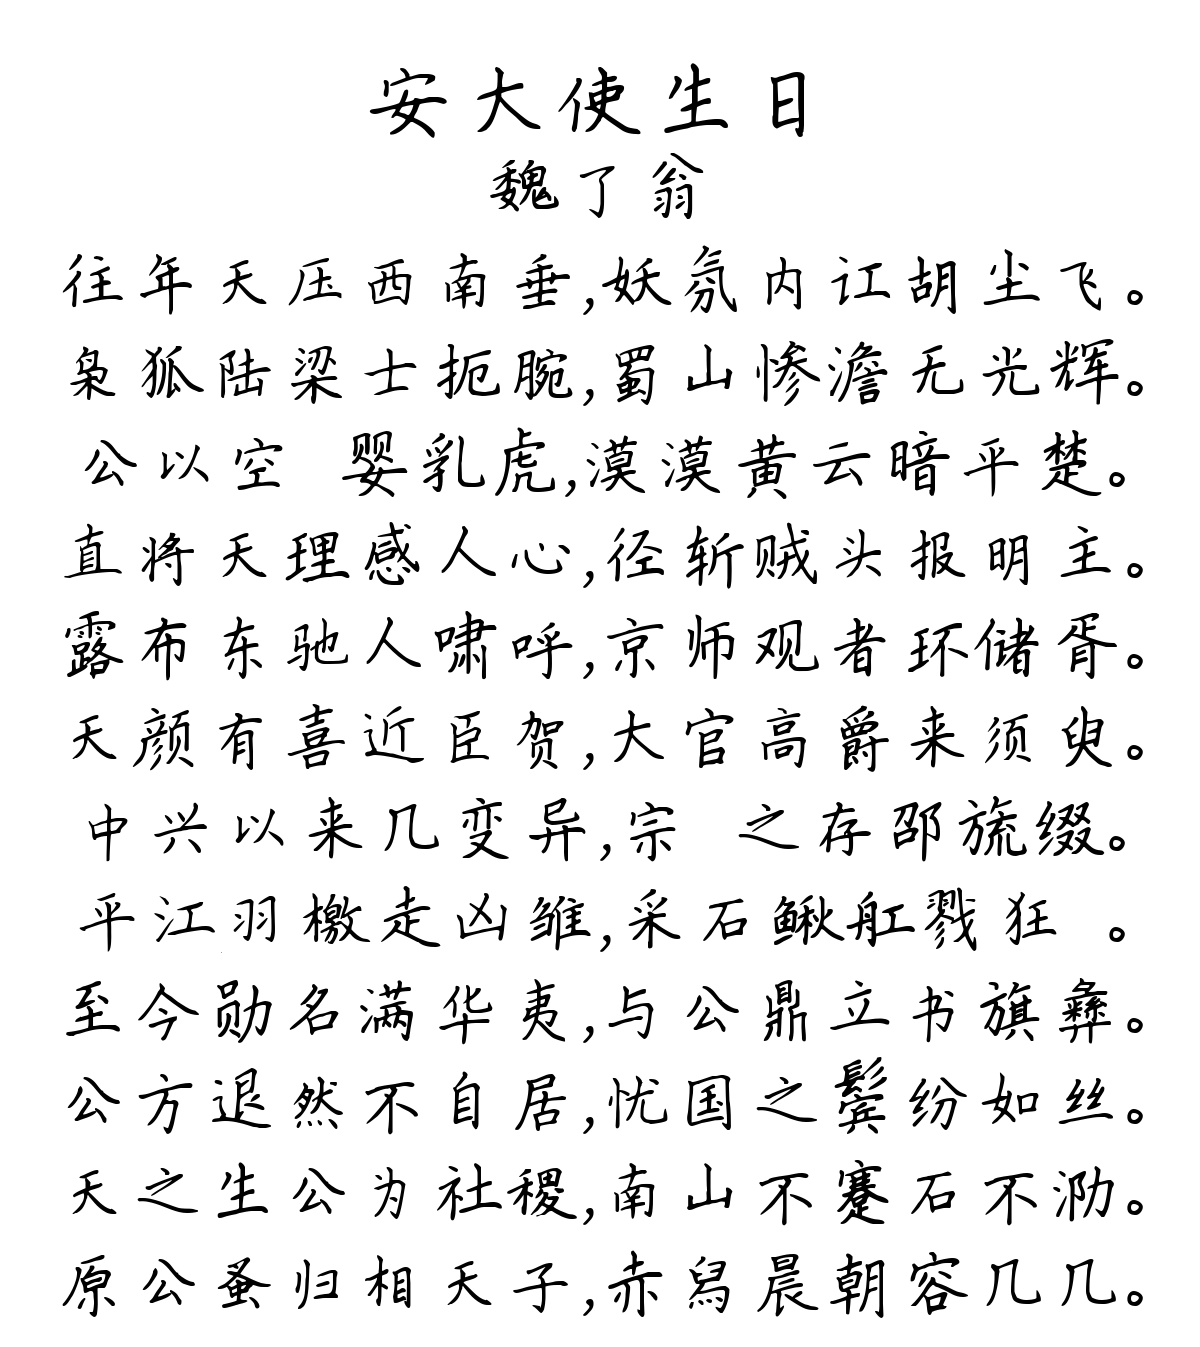 安大使生日
魏了翁
往年天压西南垂,妖氛内讧胡尘飞。
枭狐陆梁士扼腕,蜀山惨澹无光辉。
公以空 婴乳虎,漠漠黄云暗平楚。
直将天理感人心,径斩贼头报明主。
露布东驰人啸呼,京师观者环储胥。
天颜有喜近臣贺,大官高爵来须臾。
中兴以来几变异,宗 之存邵旒缀。
平江羽檄走凶雏,采石鳅舡戮狂 。
至今勋名满华夷,与公鼎立书旗彝。
公方退然不自居,忧国之鬓纷如丝。
天之生公为社稷,南山不蹇石不泐。
原公蚤归相天子,赤舄晨朝容几几。